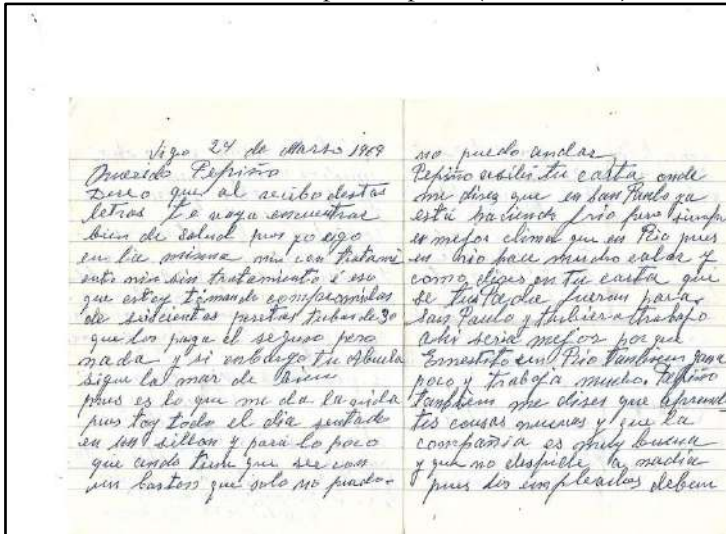 Vigo 24 de Marso 1969
Querido Pepiño
Deseo que al recibo destas
letras te vaya encuentras
bien de salud pues yo sigo
en la misma nin con tratami
ento nin sin tratamiento i eso
que estoy tomando comprimidos
de seiscientas pesetas tubos de 30
que los paga el seguro pero
nada y si enbargo tu Abuela
sigue la mar de bien
pues es lo que me da la vida
pues toy todo el dia sentado
en un sillon y para lo poco
que ando tiene que ser con
un baston que solo no puedo
no puedo andar
Pepiño recibi tu carta onde
me dises que en San Paulo ya
está haciendo frio pero siempre
es mejor clima que en Rio pues
en rio hace mucho calor y
como dises en tu carta que
se tus fueran para
San Paulo y tubiera trabajo
ahi seria mejor porque
Ernestito en Rio tambem gana
poco y trabaja mucho. Pepiño
tambem me dises que aprende
tes cousas nuevas y que la
compañia es muy buena
y que no despide a nadia
pues los empleados deben